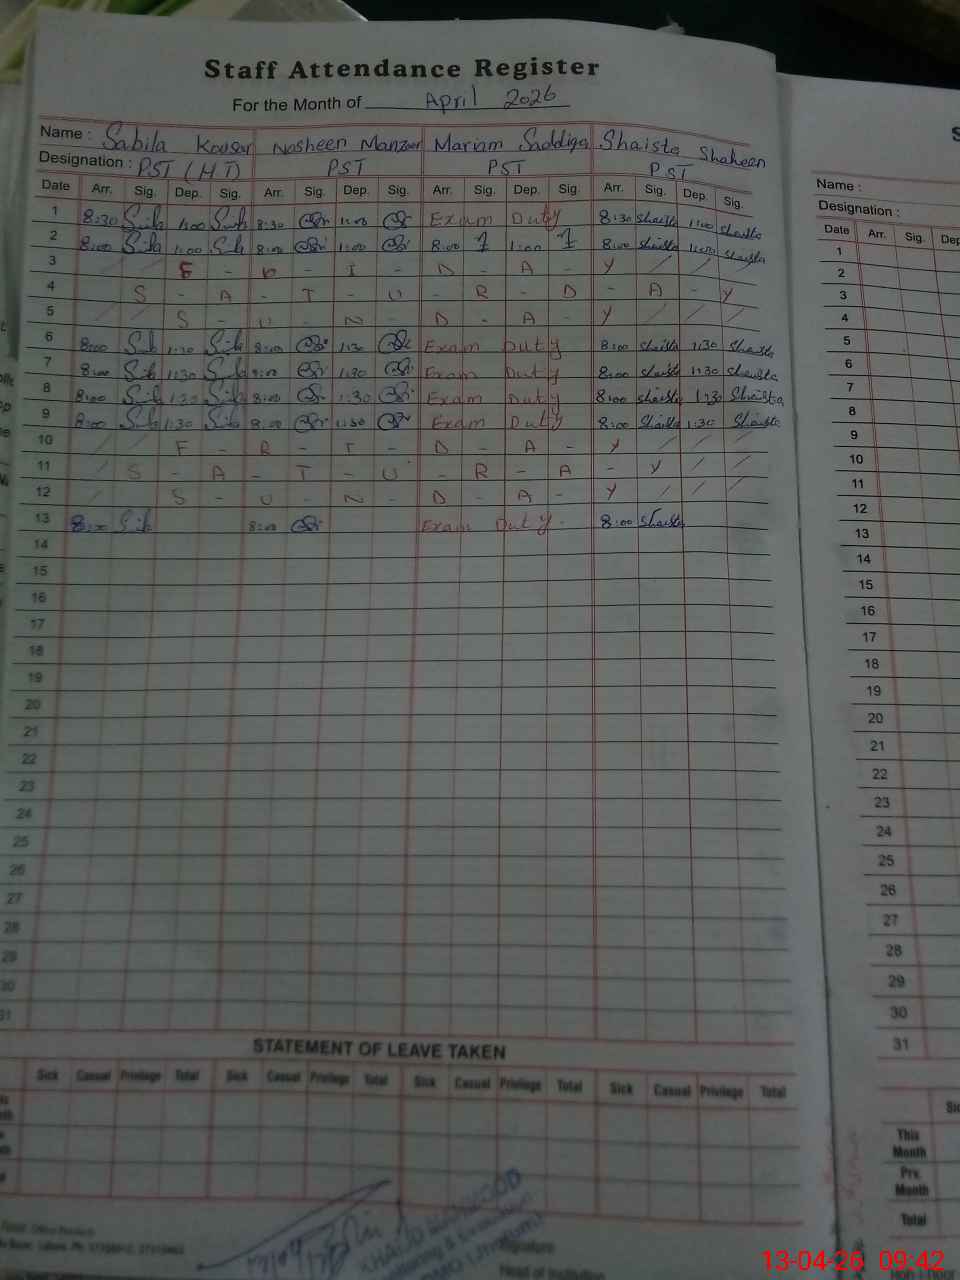 Staff Attendance Register
For the Month of April 2026
Name : Sabila Kousar Nosheen Manzoor Mariam Saddiqa Shaista Shaheen
Designation : PST (H.T) PST PST PST
Date Arr. Sig. Dep. Sig. Arr. Sig. Dep. Sig. Arr. Sig. Dep. Sig. Arr. Sig. Dep. Sig.
1 8:30 1:00 8:30 1:00 Exam Duty 8:30 Shaista 1:00 Shaista
2 8:00 1:00 8:00 1:00 8:00 1:00 8:00 Shaista 1:00 Shaista
3 F - R - I - D - A - Y
4 S - A - T - U - R - D - A - Y
5 S - U - N - D - A - Y
6 8:00 1:30 8:00 1:30 Exam Duty 8:00 Shaista 1:30 Shaista
7 8:00 1:30 8:00 1:30 Exam Duty 8:00 Shaista 1:30 Shaista
8 8:00 1:30 8:00 1:30 Exam Duty 8:00 Shaista 1:30 Shaista
9 8:00 1:30 8:00 1:30 Exam Duty 8:00 Shaista 1:30 Shaista
10 F - R - I - D - A - Y
11 S - A - T - U - R - A - Y
12 S - U - N - D - A - Y
13 8:00 8:00 Exam Duty. 8:00 Shaista
14
15
16
17
18
19
20
21
22
23
24
25
26
27
28
29
30
31
STATEMENT OF LEAVE TAKEN
Sick Casual Privilege Total Sick Casual Privilege Total Sick Casual Privilege Total Sick Casual Privilege Total
Head of Institution
Name :
Designation :
Date Arr. Sig. Dep
1
2
3
4
5
6
7
8
9
10
11
12
13
14
15
16
17
18
19
20
21
22
23
24
25
26
27
28
29
30
31
This Month
Prv. Month
Total
13-04-26 09:42